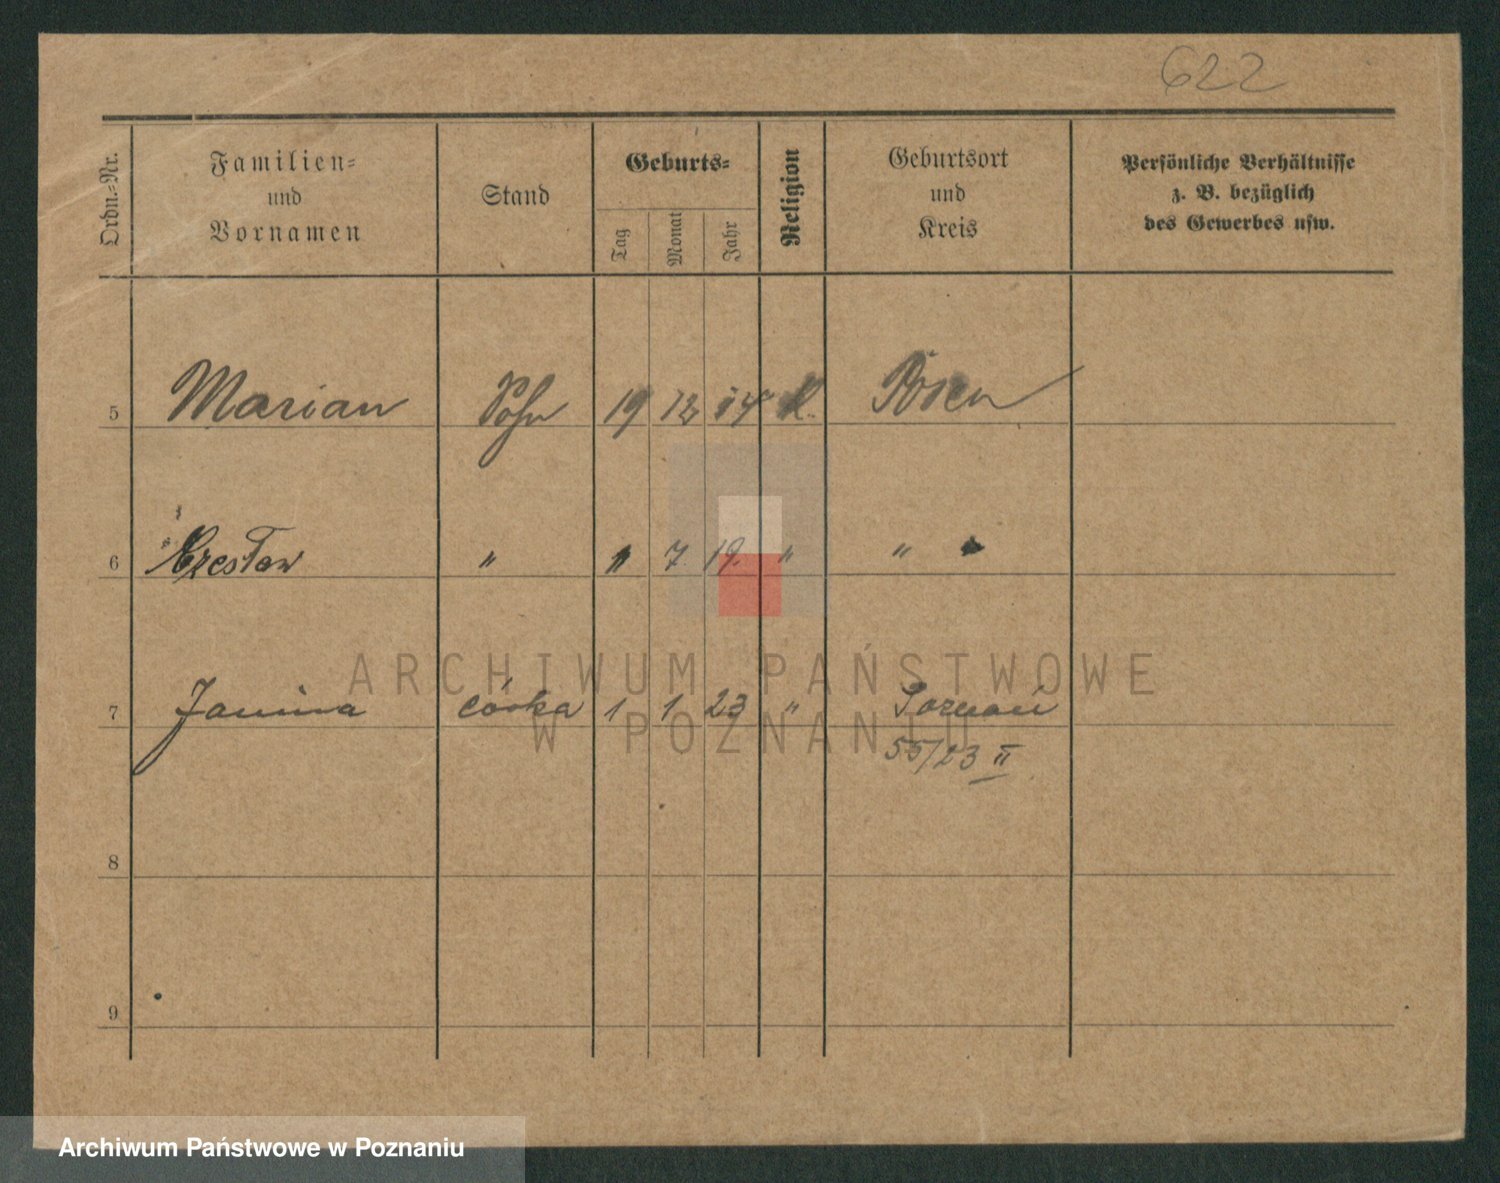 622
Ordn.-Nr.
Familien-
und
Vornamen
Stand
Geburts-
Tag
Monat
Jahr
Religion
Geburtsort
und
Kreis
Persönliche Verhältnisse
z. B. bezüglich
des Gewerbes usw.
5 Marian Sohn 19 12 14 K. Posen
6 Czesław " 7. 19. " "
7 Janina córka 1 1 23 " Poznań
55/23 II
8
9
ARCHIWUM PAŃSTWOWE
W POZNANIU
Archiwum Państwowe w Poznaniu